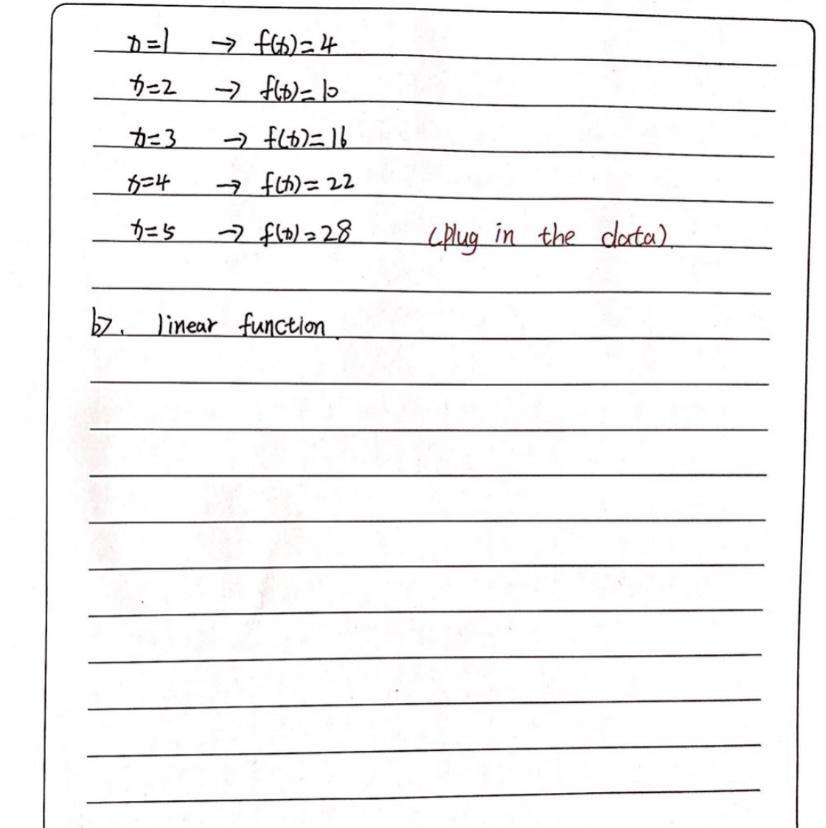 x=1 → f(x)=4
x=2 → f(x)=10
x=3 → f(x)=16
x=4 → f(x)=22
x=5 → f(x)=28 (plug in the data).
b>. linear function.